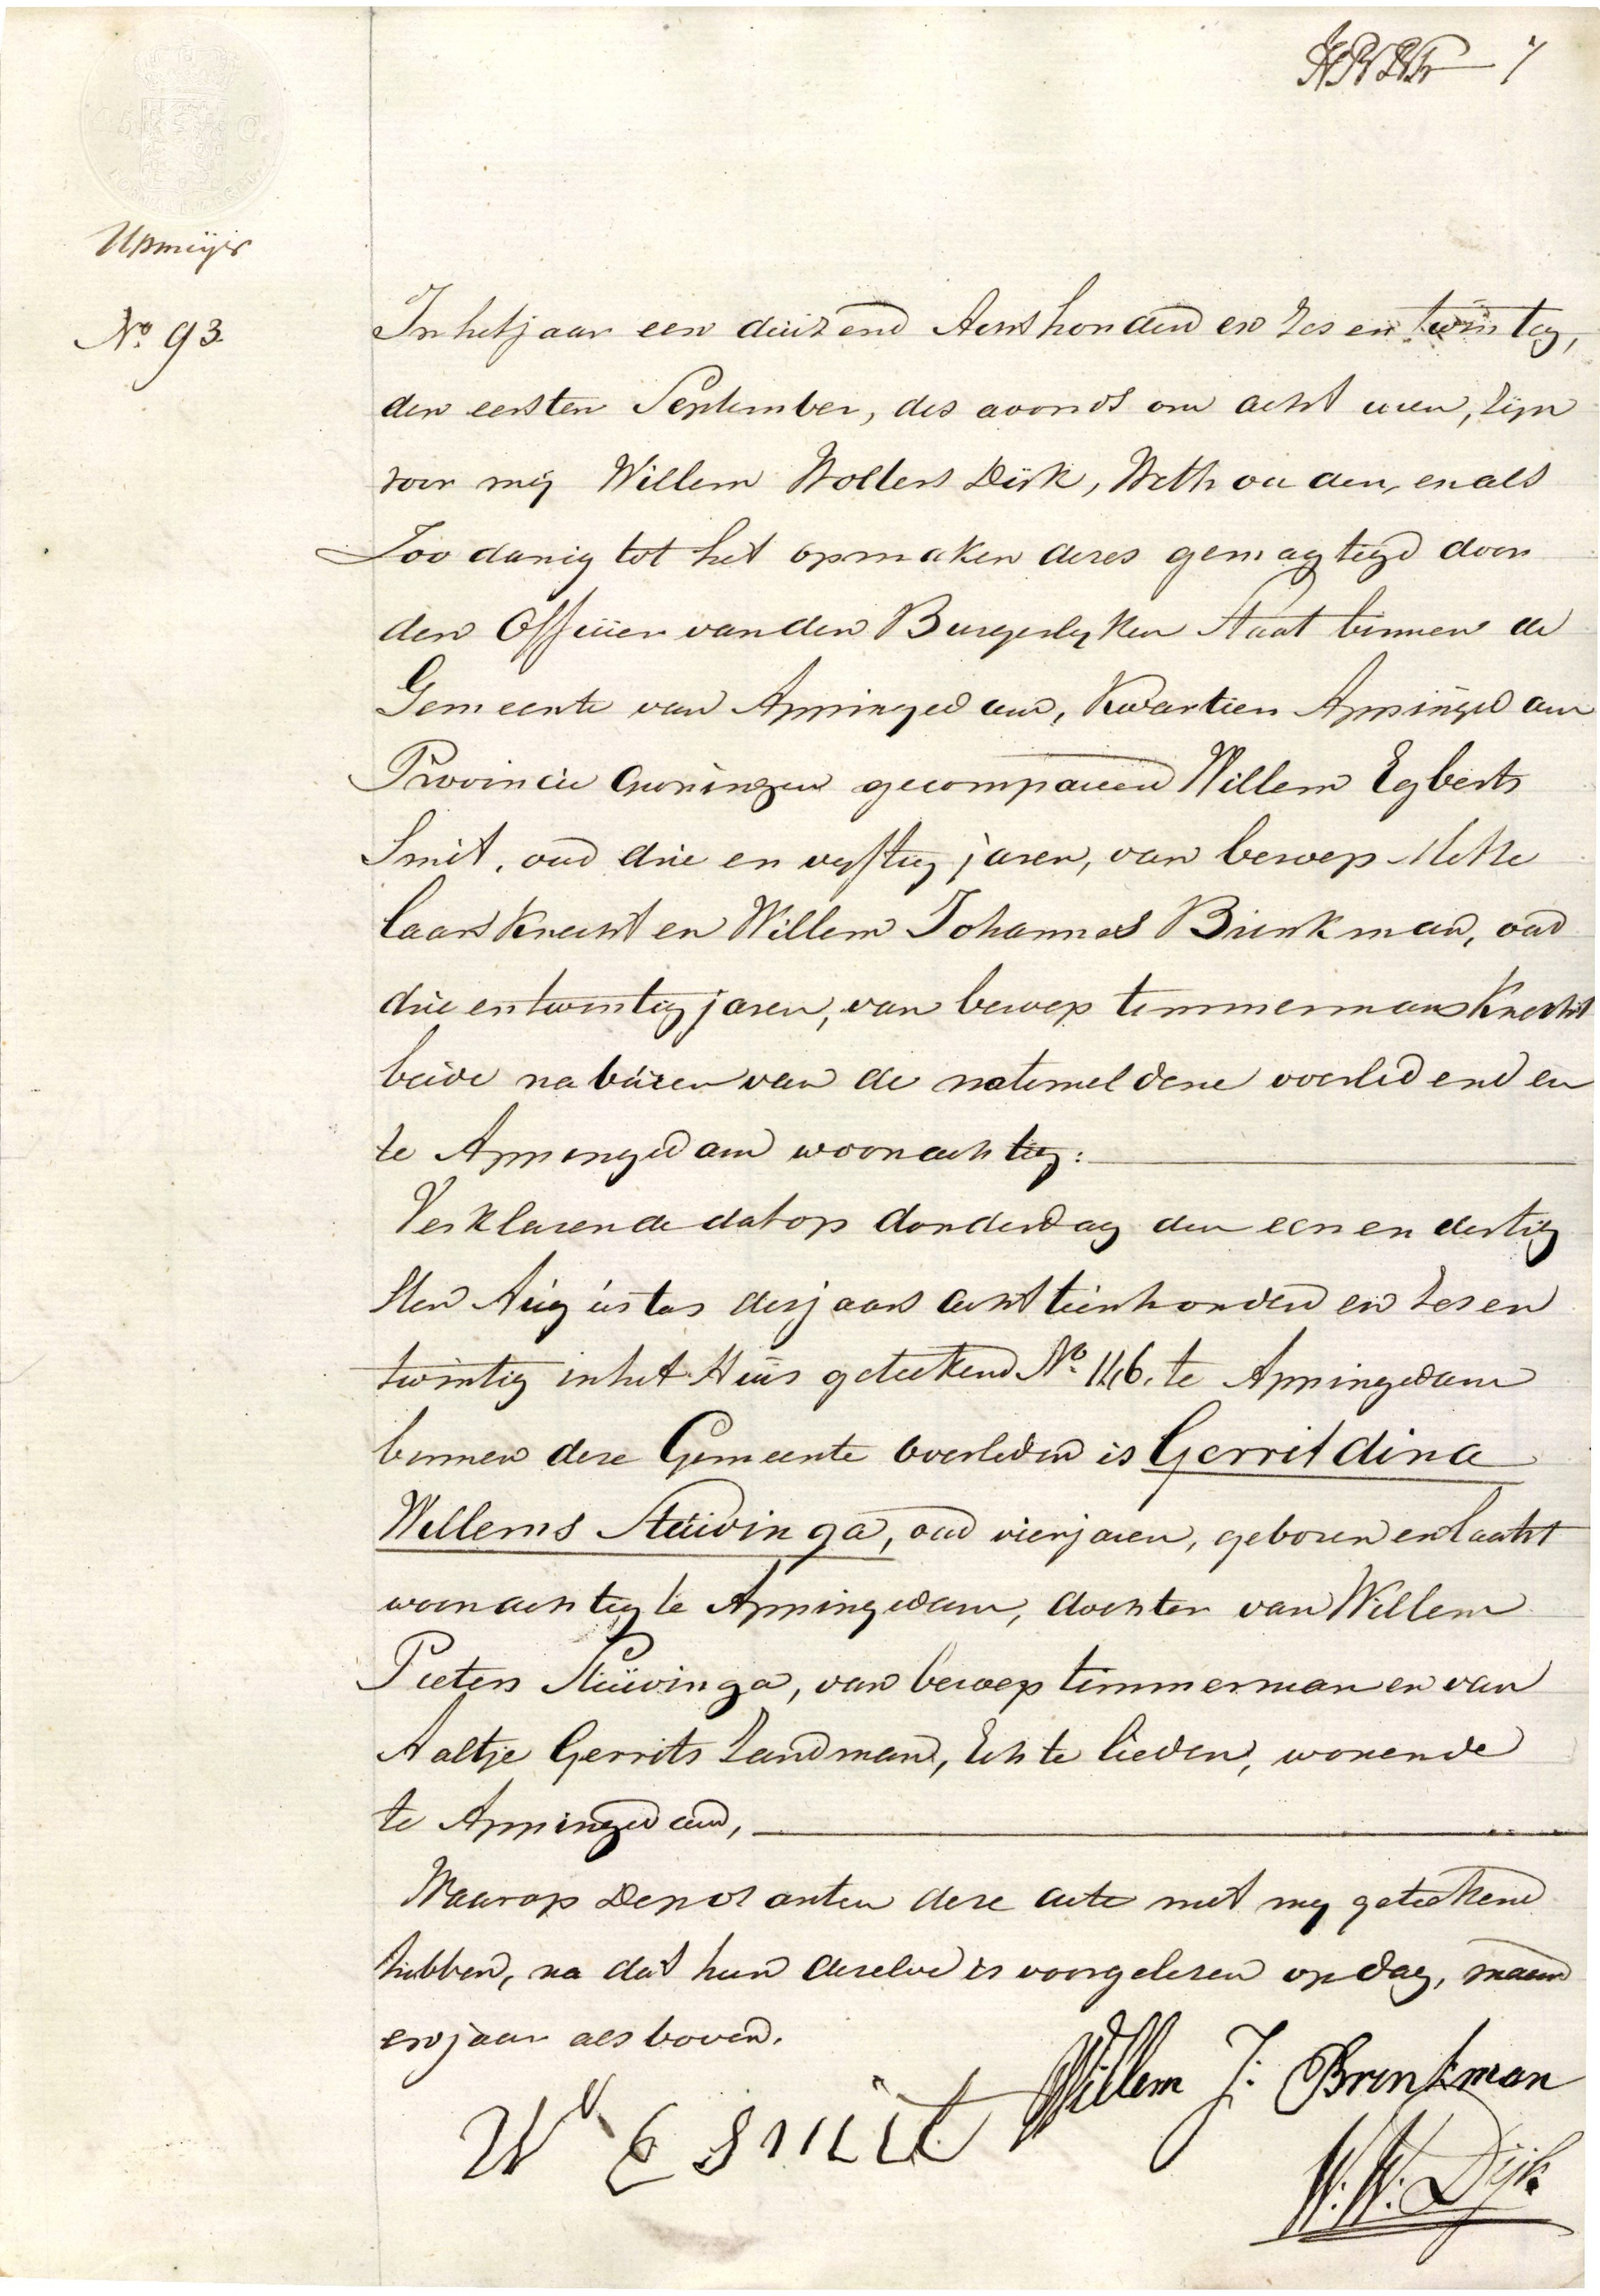 7
Upmeijer
No. 93.
In het jaar een duizend Acht honderd en zes en twintig,
den eersten September, des avonds om acht uren, zijn
voor mij Willem Wolters Dijk, Wethouder, en als
Zoo danig tot het opmaken dezes gemagtigd door
den Officier van den Burgerlyken Staat binnen de
Gemeente van Appingedam, Kwartier Appingedam
Provincie Groningen gecompareerd Willem Egberts
Smit, oud drie en vyftig jaren, van beroep
laars Knecht en Willem Johannes Brinkman, oud
drie en twintig jaren, van beroep timmermans Knecht
beide naburen van de natemeldene overledene en
te Appingedam woonachtig:
Verklarende dat op donderdag den een en dertig
sten Augustus dezjaars acht tienhonderd en zes en
twintig in het Huis geteekend No. 116. te Appingedam
binnen deze Gemeente overleden is Gerritdina
Willems Stuivinga, oud vier jaren, geboren en laatst
woonachtig te Appingedam, dochter van Willem
Pieters Stuivinga, van beroep timmerman en van
Aaltje Gerrits Landman, Echte lieden, wonende
te Appingedam,
Waarop Deposanten deze acte met my geteekend
hebben, na dat hun dezelve is voorgelezen op dag, maand
en jaar als boven.
Willem J: Brinkman
W E Smit
W. W. Dijk